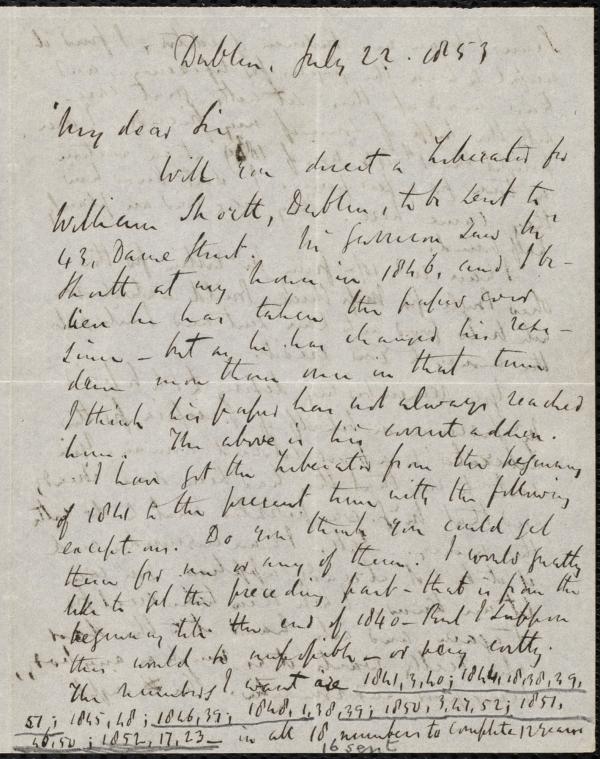 Dublin, July 22. 1853
My dear Sir,
Will you direct a Liberator for
William Shortt, Dublin, to be sent to
43, Dame Street. Mr Garrison saw Mr
Shortt at my house in 1846, and I be-
lieve he has taken the paper ever
since - but as he has changed his resi-
dence more than once in that time
I think his paper has not always reached
him. The above is his correct address.
I have got the Liberator from the beginning
of 1841 to the present time with the following
exceptions. Do you think you could get
them for me or any of them. I would greatly
like to get the preceding part - that is from the
beginning till the end of 1840 - But I suppose
this would be impossible - or very costly.
The numbers I want are 1841, 3, 40; 1844, 18, 38, 39,
51; 1845, 48; 1846, 39; 1848, 1, 38, 39; 1850, 3, 47, 52; 1851,
48, 50; 1852, 17, 23 - in all 18 numbers to complete 12 years
16 sent